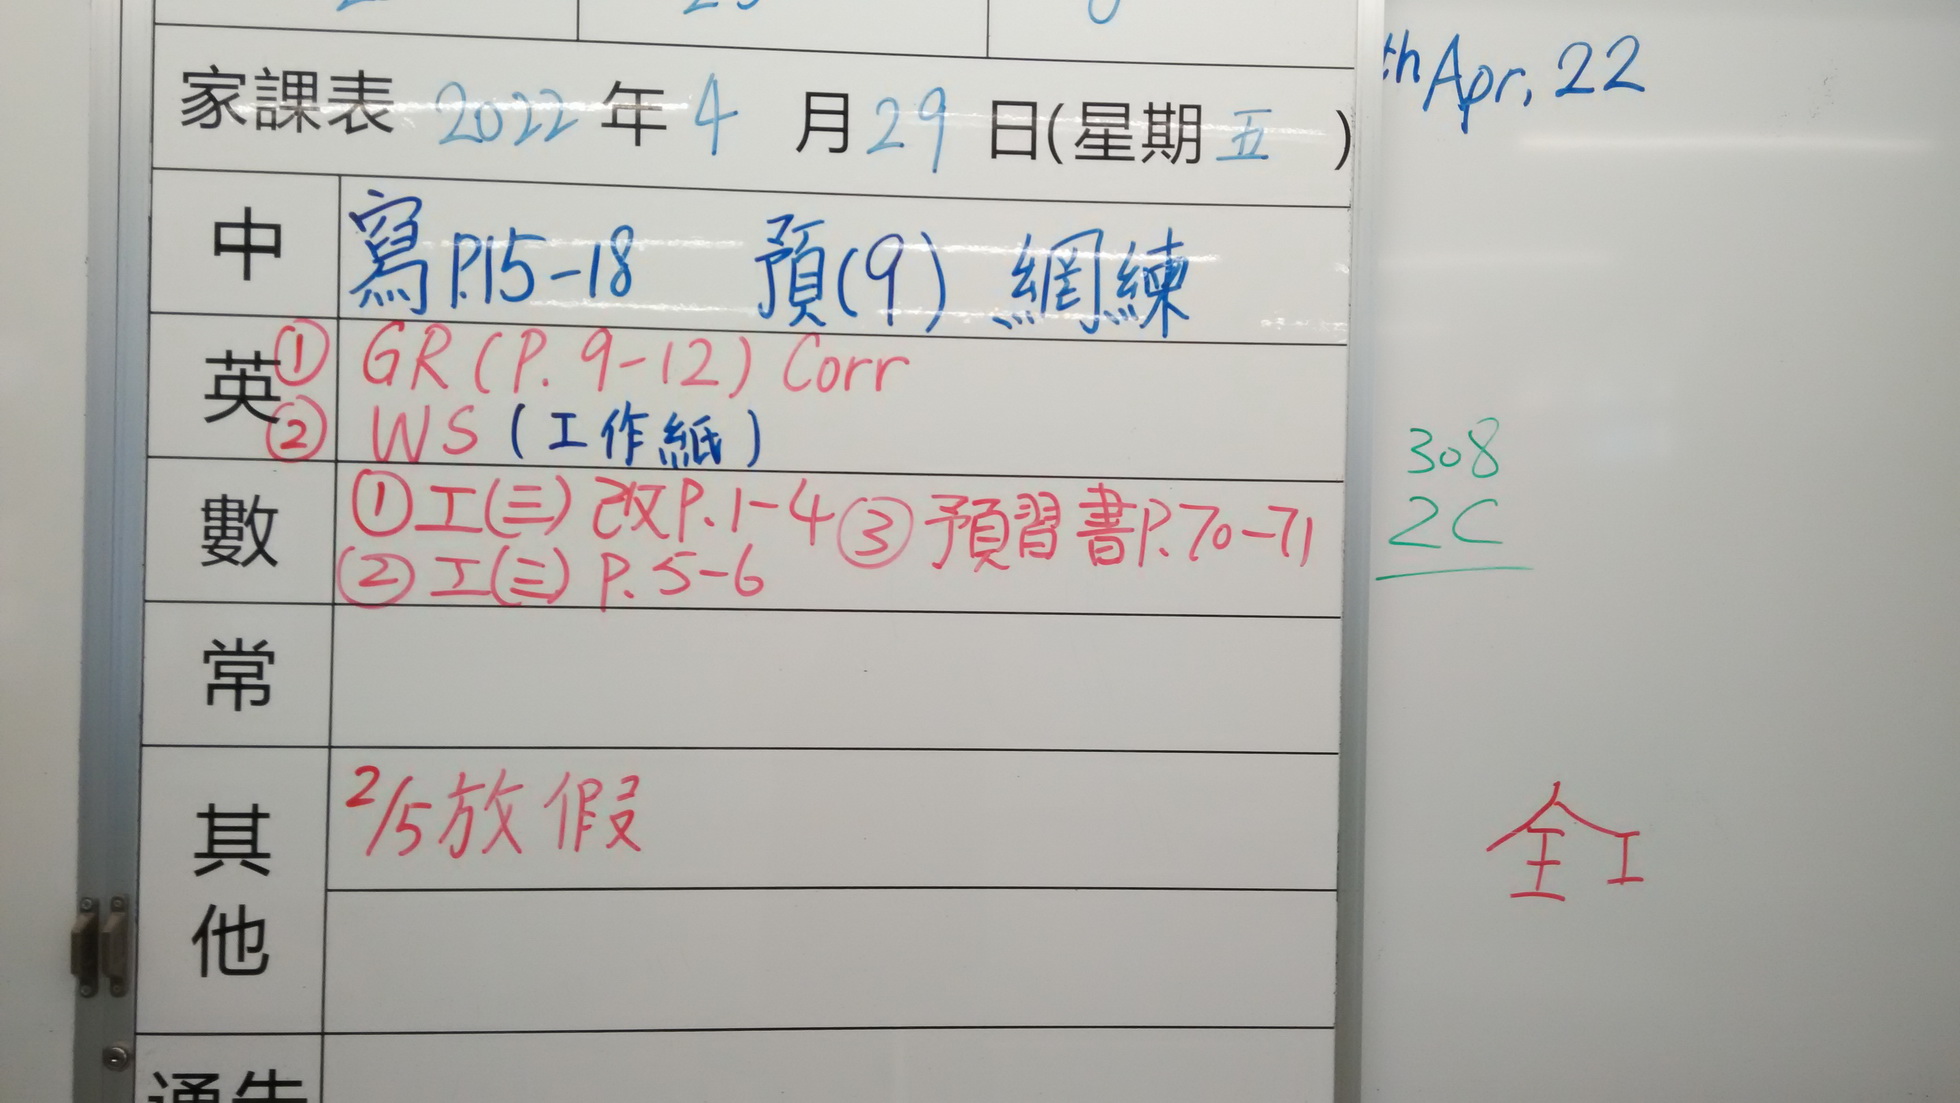 家課表 2022 年 4 月 29 日(星期 五 )
th Apr, 22
中 寫P.15-18 預(9) 網練
英 ① GR (P. 9-12) Corr
② WS (工作紙)
數 ①工(三) 改P.1-4 ③預習書P.70-71
②工(三) P.5-6
308
2C
常
其他 2/5放假
全工
通告